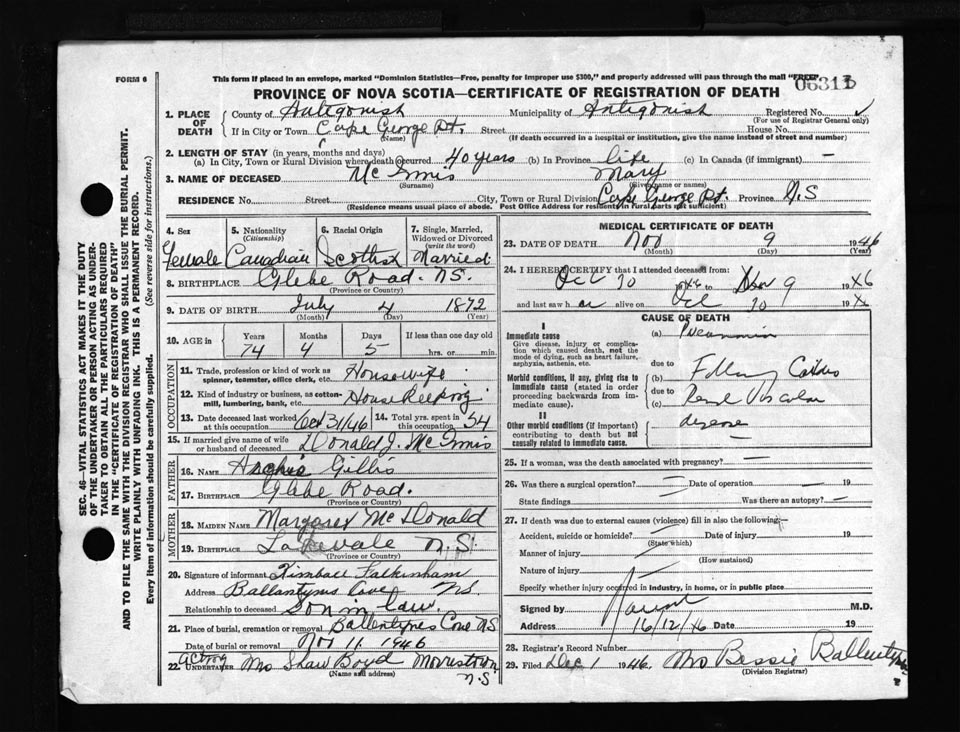 FORM 6
This form if placed in an envelope, marked "Dominion Statistics—Free, penalty for improper use $300," and properly addressed will pass through the mail "FREE"
PROVINCE OF NOVA SCOTIA—CERTIFICATE OF REGISTRATION OF DEATH
1. PLACE OF DEATH County of Antigonish Municipality of Antigonish Registered No.
(For use of Registrar General only)
If in City or Town Cape George Pt. Street House No.
(Name) (If death occurred in a hospital or institution, give the name instead of street and number)
2. LENGTH OF STAY (in years, months and days)
(a) In City, Town or Rural Division where death occurred 40 years (b) In Province life (c) In Canada (if immigrant) —
3. NAME OF DECEASED Mc Innis Mary
(Surname) (Given name or names)
RESIDENCE No. Street City, Town or Rural Division Cape George Pt. Province N.S
(Residence means usual place of abode. Post Office Address for residents in rural parts not sufficient)
4. Sex 5. Nationality (Citizenship) 6. Racial Origin 7. Single, Married, Widowed or Divorced (write the word)
Female Canadian Scottish Married
8. BIRTHPLACE Glebe Road. N.S.
(Province or Country)
9. DATE OF BIRTH July 4 1872
(Month) (Day) (Year)
10. AGE in Years Months Days If less than one day old
74 4 5 hrs. or min.
OCCUPATION
11. Trade, profession or kind of work as spinner, teamster, office clerk, etc. Housewife
12. Kind of industry or business, as cotton-mill, lumbering, bank, etc. House Keeping
13. Date deceased last worked at this occupation Oct 31/46 14. Total yrs. spent in this occupation 54
15. If married give name of wife or husband of deceased Donald J. Mc Innis
FATHER
16. NAME Archie Gillis
17. BIRTHPLACE Glebe Road.
(Province or Country)
MOTHER
18. MAIDEN NAME Margaret Mc Donald
19. BIRTHPLACE Lakevale N.S.
(Province or Country)
20. Signature of informant Kimball Falkinham
Address Ballantynes Cove N.S.
Relationship to deceased Son in law.
21. Place of burial, cremation or removal Ballentynes Cove N.S
Date of burial or removal Nov 11. 1946
22. Acting UNDERTAKER Mrs Shaw Boyd Morristown
(Name and address) N.S
MEDICAL CERTIFICATE OF DEATH
23. DATE OF DEATH Nov 9 1946
(Month) (Day) (Year)
24. I HEREBY CERTIFY that I attended deceased from:
Oct 30 to Nov 9 19
and last saw h alive on Oct 30 19
CAUSE OF DEATH
I
Immediate cause
Give disease, injury or complication which caused death, not the mode of dying, such as heart failure, asphyxia, asthenia, etc.
(a)
due to
Morbid conditions, if any, giving rise to immediate cause (stated in order proceeding backwards from immediate cause).
(b)
due to
(c)
II
Other morbid conditions (if important) contributing to death but not causally related to immediate cause.
25. If a woman, was the death associated with pregnancy? —
26. Was there a surgical operation? — Date of operation — 19
State findings Was there an autopsy? —
27. If death was due to external causes (violence) fill in also the following:—
Accident, suicide or homicide? Date of injury 19
(State which)
Manner of injury
(How sustained)
Nature of injury
Specify whether injury occurred in industry, in home, or in public place
Signed by M.D.
Address 16/12/46 Date 19
28. Registrar's Record Number
29. Filed Dec 1 1946. Mrs Bessie
(Division Registrar)
SEC. 46—VITAL STATISTICS ACT MAKES IT THE DUTY
OF THE UNDERTAKER OR PERSON ACTING AS UNDER-
TAKER TO OBTAIN ALL THE PARTICULARS REQUIRED
IN THE "CERTIFICATE OF REGISTRATION OF DEATH"
AND TO FILE THE SAME WITH THE DIVISION REGISTRAR WHO SHALL ISSUE THE BURIAL PERMIT.
WRITE PLAINLY WITH UNFADING INK. THIS IS A PERMANENT RECORD.
Every item of information should be carefully supplied. (See reverse side for instructions.)